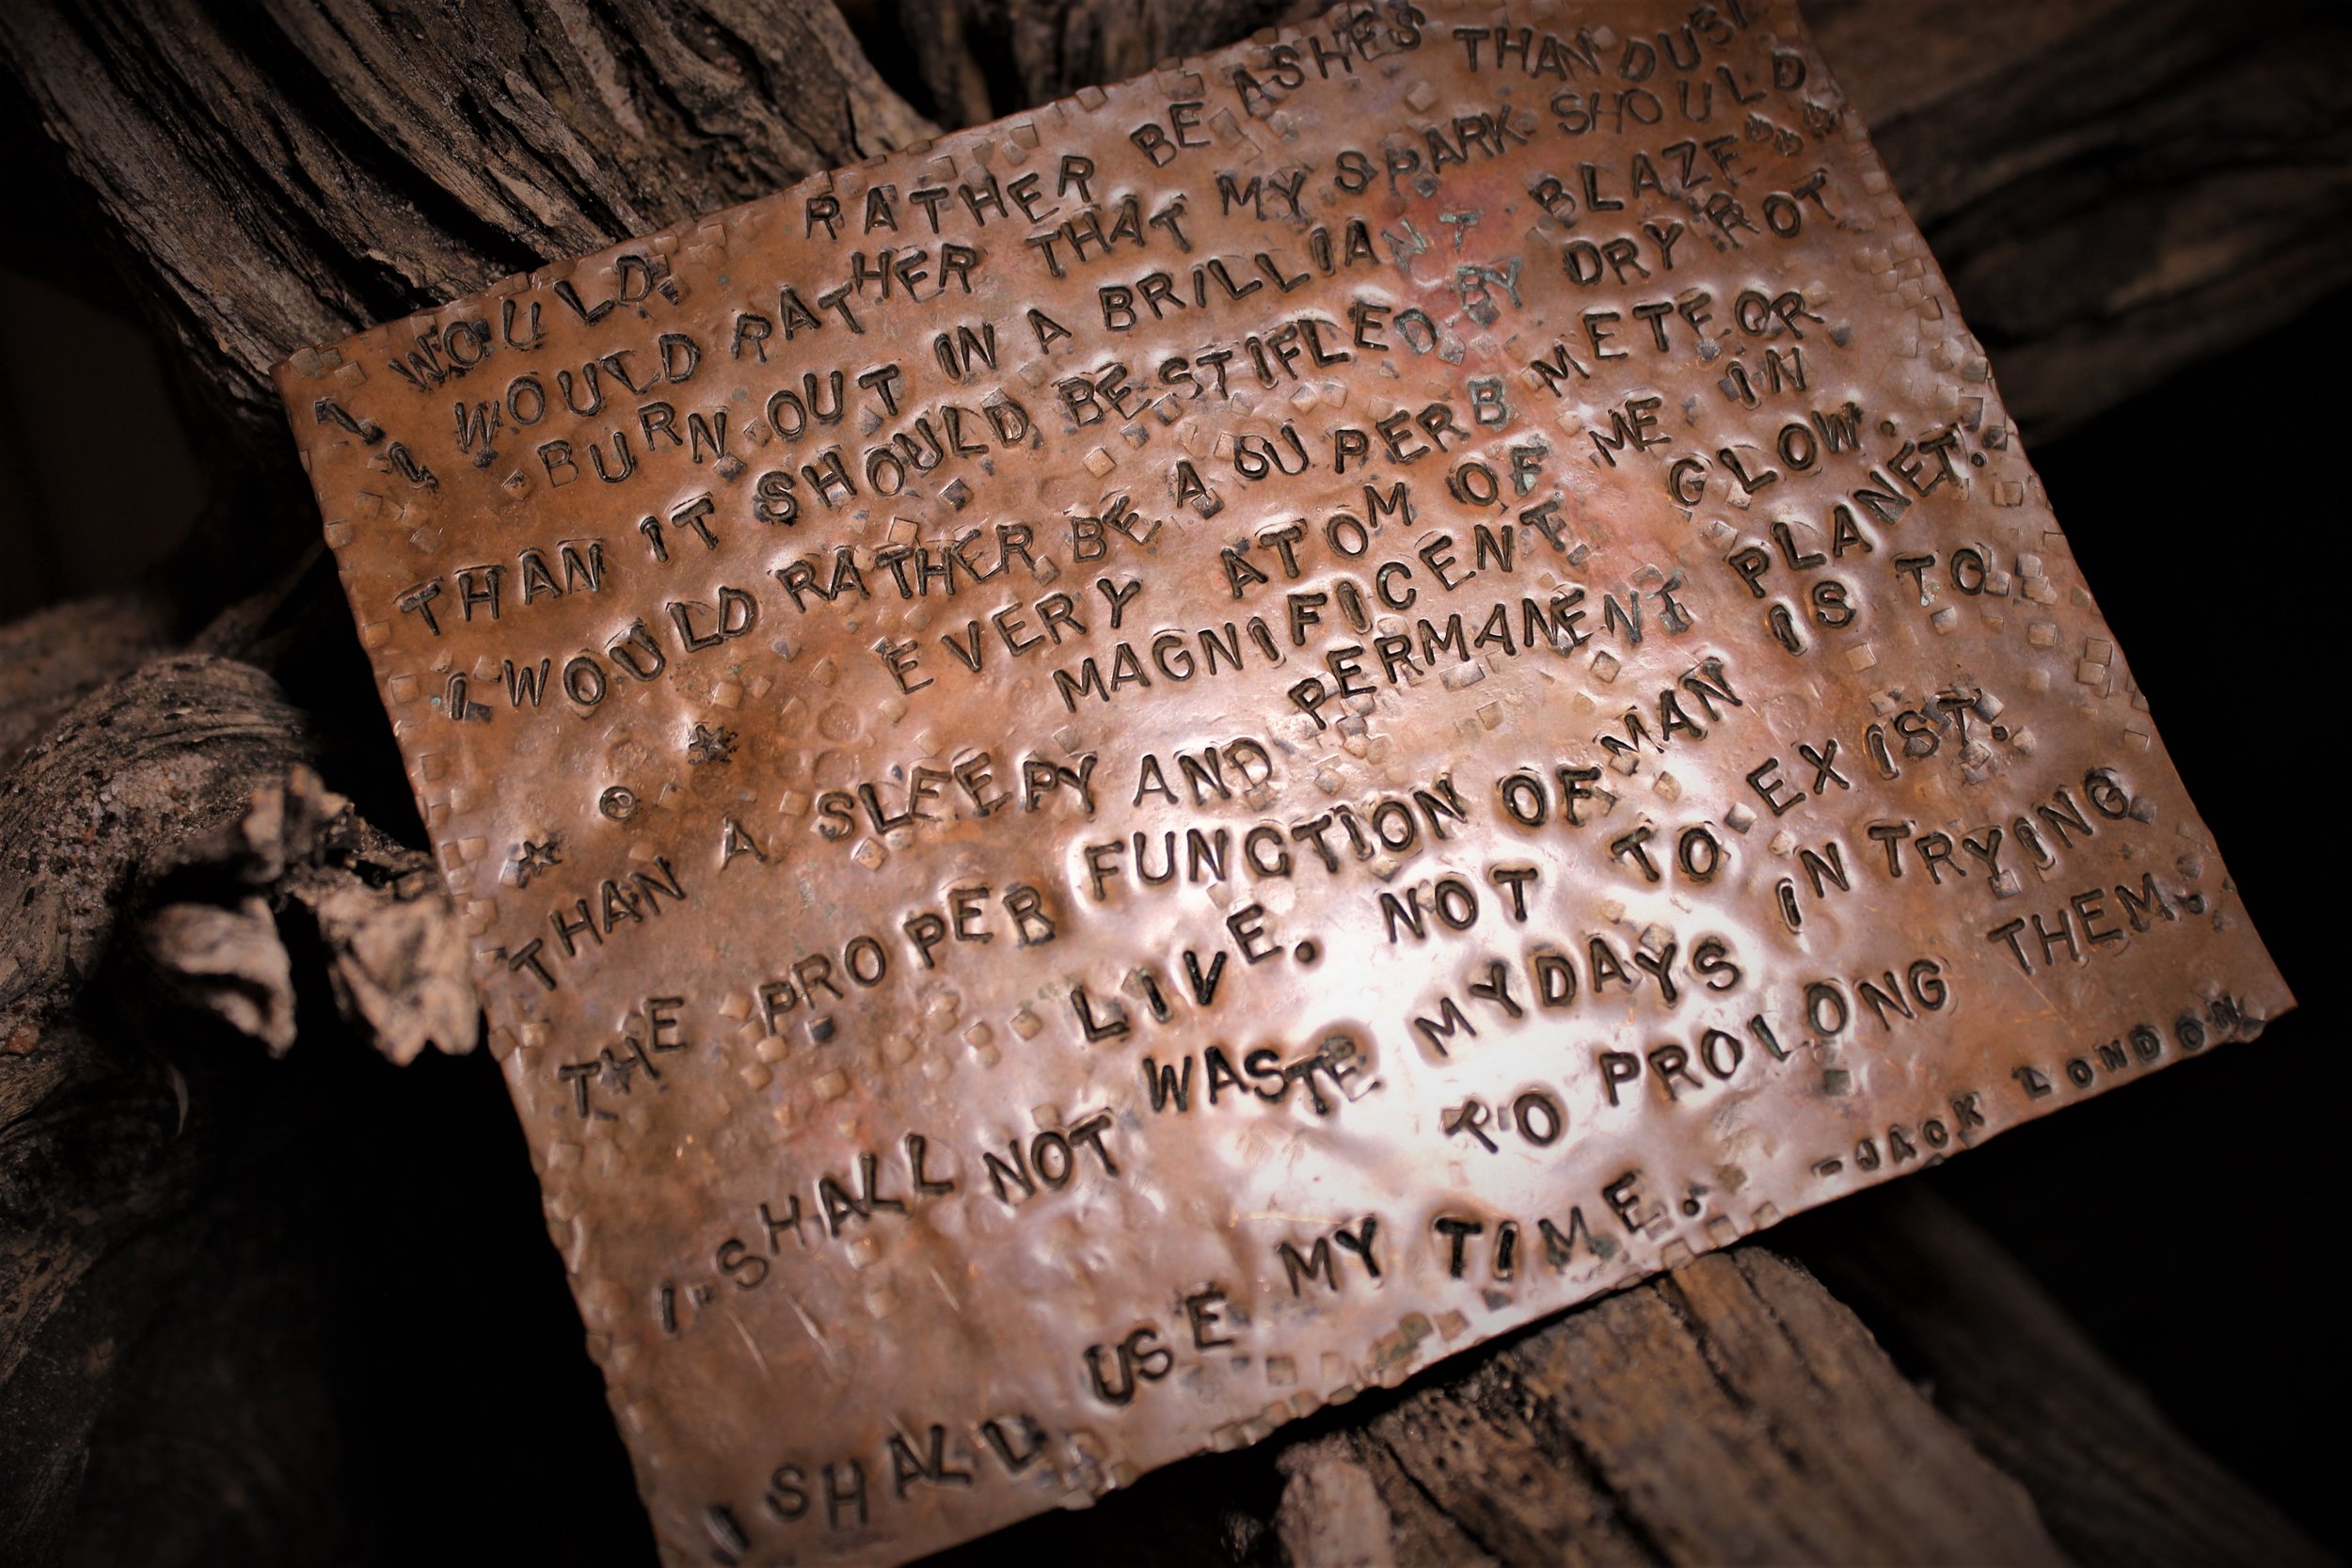 I WOULD RATHER BE ASHES THAN DUST
I WOULD RATHER THAT MY SPARK SHOULD
BURN OUT IN A BRILLIANT BLAZE
THAN IT SHOULD BE STIFLED BY DRY ROT
I WOULD RATHER BE A SUPERB METEOR
EVERY ATOM OF ME IN
MAGNIFICENT GLOW.
THAN A SLEEPY AND PERMANENT PLANET.
THE PROPER FUNCTION OF MAN IS TO
LIVE. NOT TO EXIST.
I SHALL NOT WASTE MY DAYS IN TRYING
TO PROLONG THEM.
I SHALL USE MY TIME.
-JACK LONDON